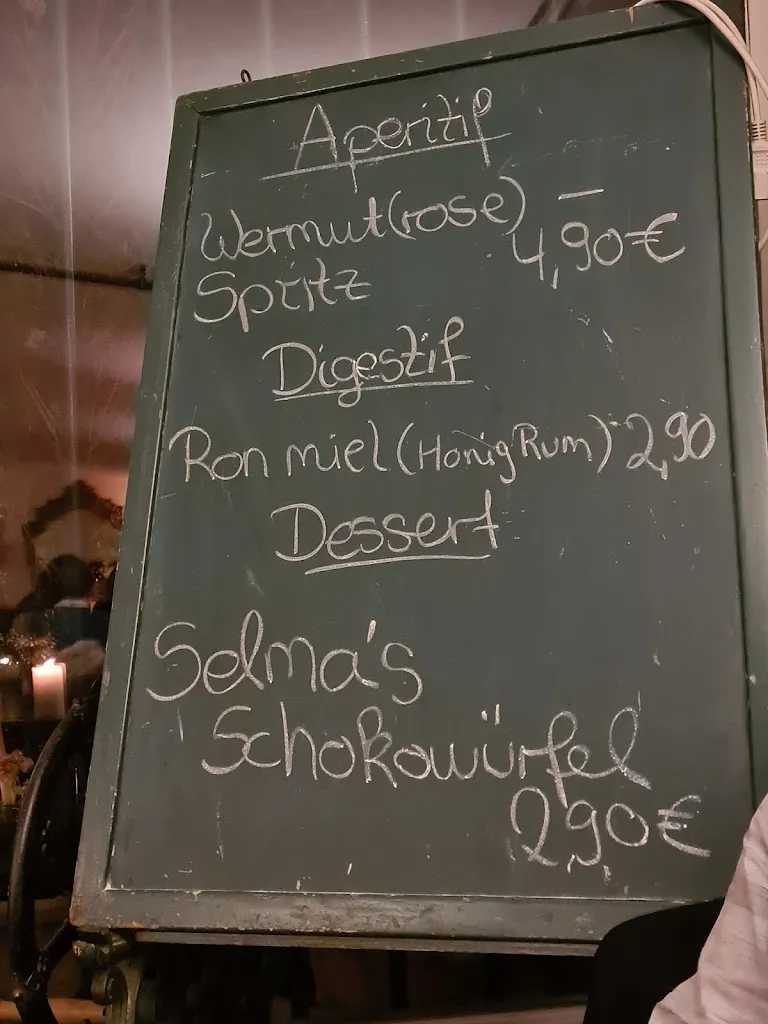 Aperitif
Wermut(rose) –
Spritz 4,90€
Digestif
Ron miel (Honig Rum) 2,90
Dessert
Selma's
Schokowürfel
2,90€